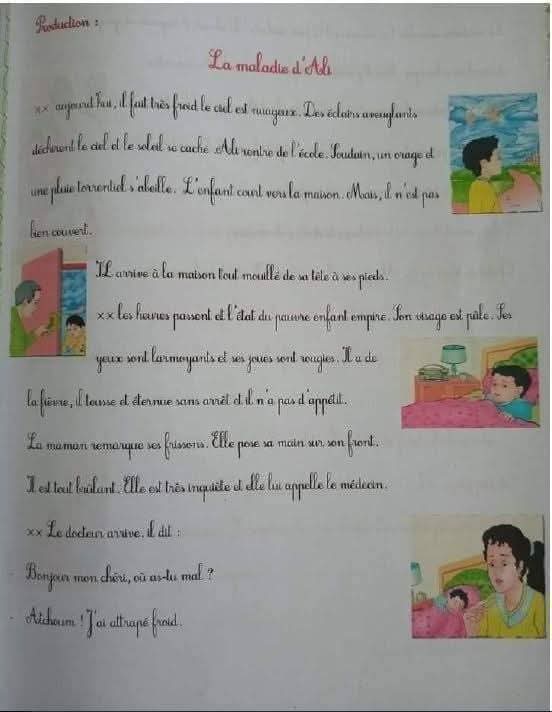 Production :
La maladie d'Ali
xx aujourd'hui, il fait très froid le ciel est nuageux. Des éclairs aveuglants
déchirent le ciel et le soleil se cache. Ali rentre de l'école. Soudain, un orage et
une pluie torrentiel s'abeille. L'enfant court vers la maison. Mais, il n'est pas
bien couvert.
Il arrive à la maison tout mouillé de sa tête à ses pieds.
xx les heures passent et l'état du pauvre enfant empire. Son visage est pâle. Ses
yeux sont larmoyants et ses joues sont rougies. Il a de
la fièvre, il tousse et éternue sans arrêt et il n'a pas d'appétit.
La maman remarque ses frissons. Elle pose sa main sur son front.
Il est tout brûlant. Elle est très inquiète et elle lui appelle le médecin.
xx Le docteur arrive. il dit :
- Bonjour mon chéri, où as-tu mal ?
- Atchoum ! J'ai attrapé froid.